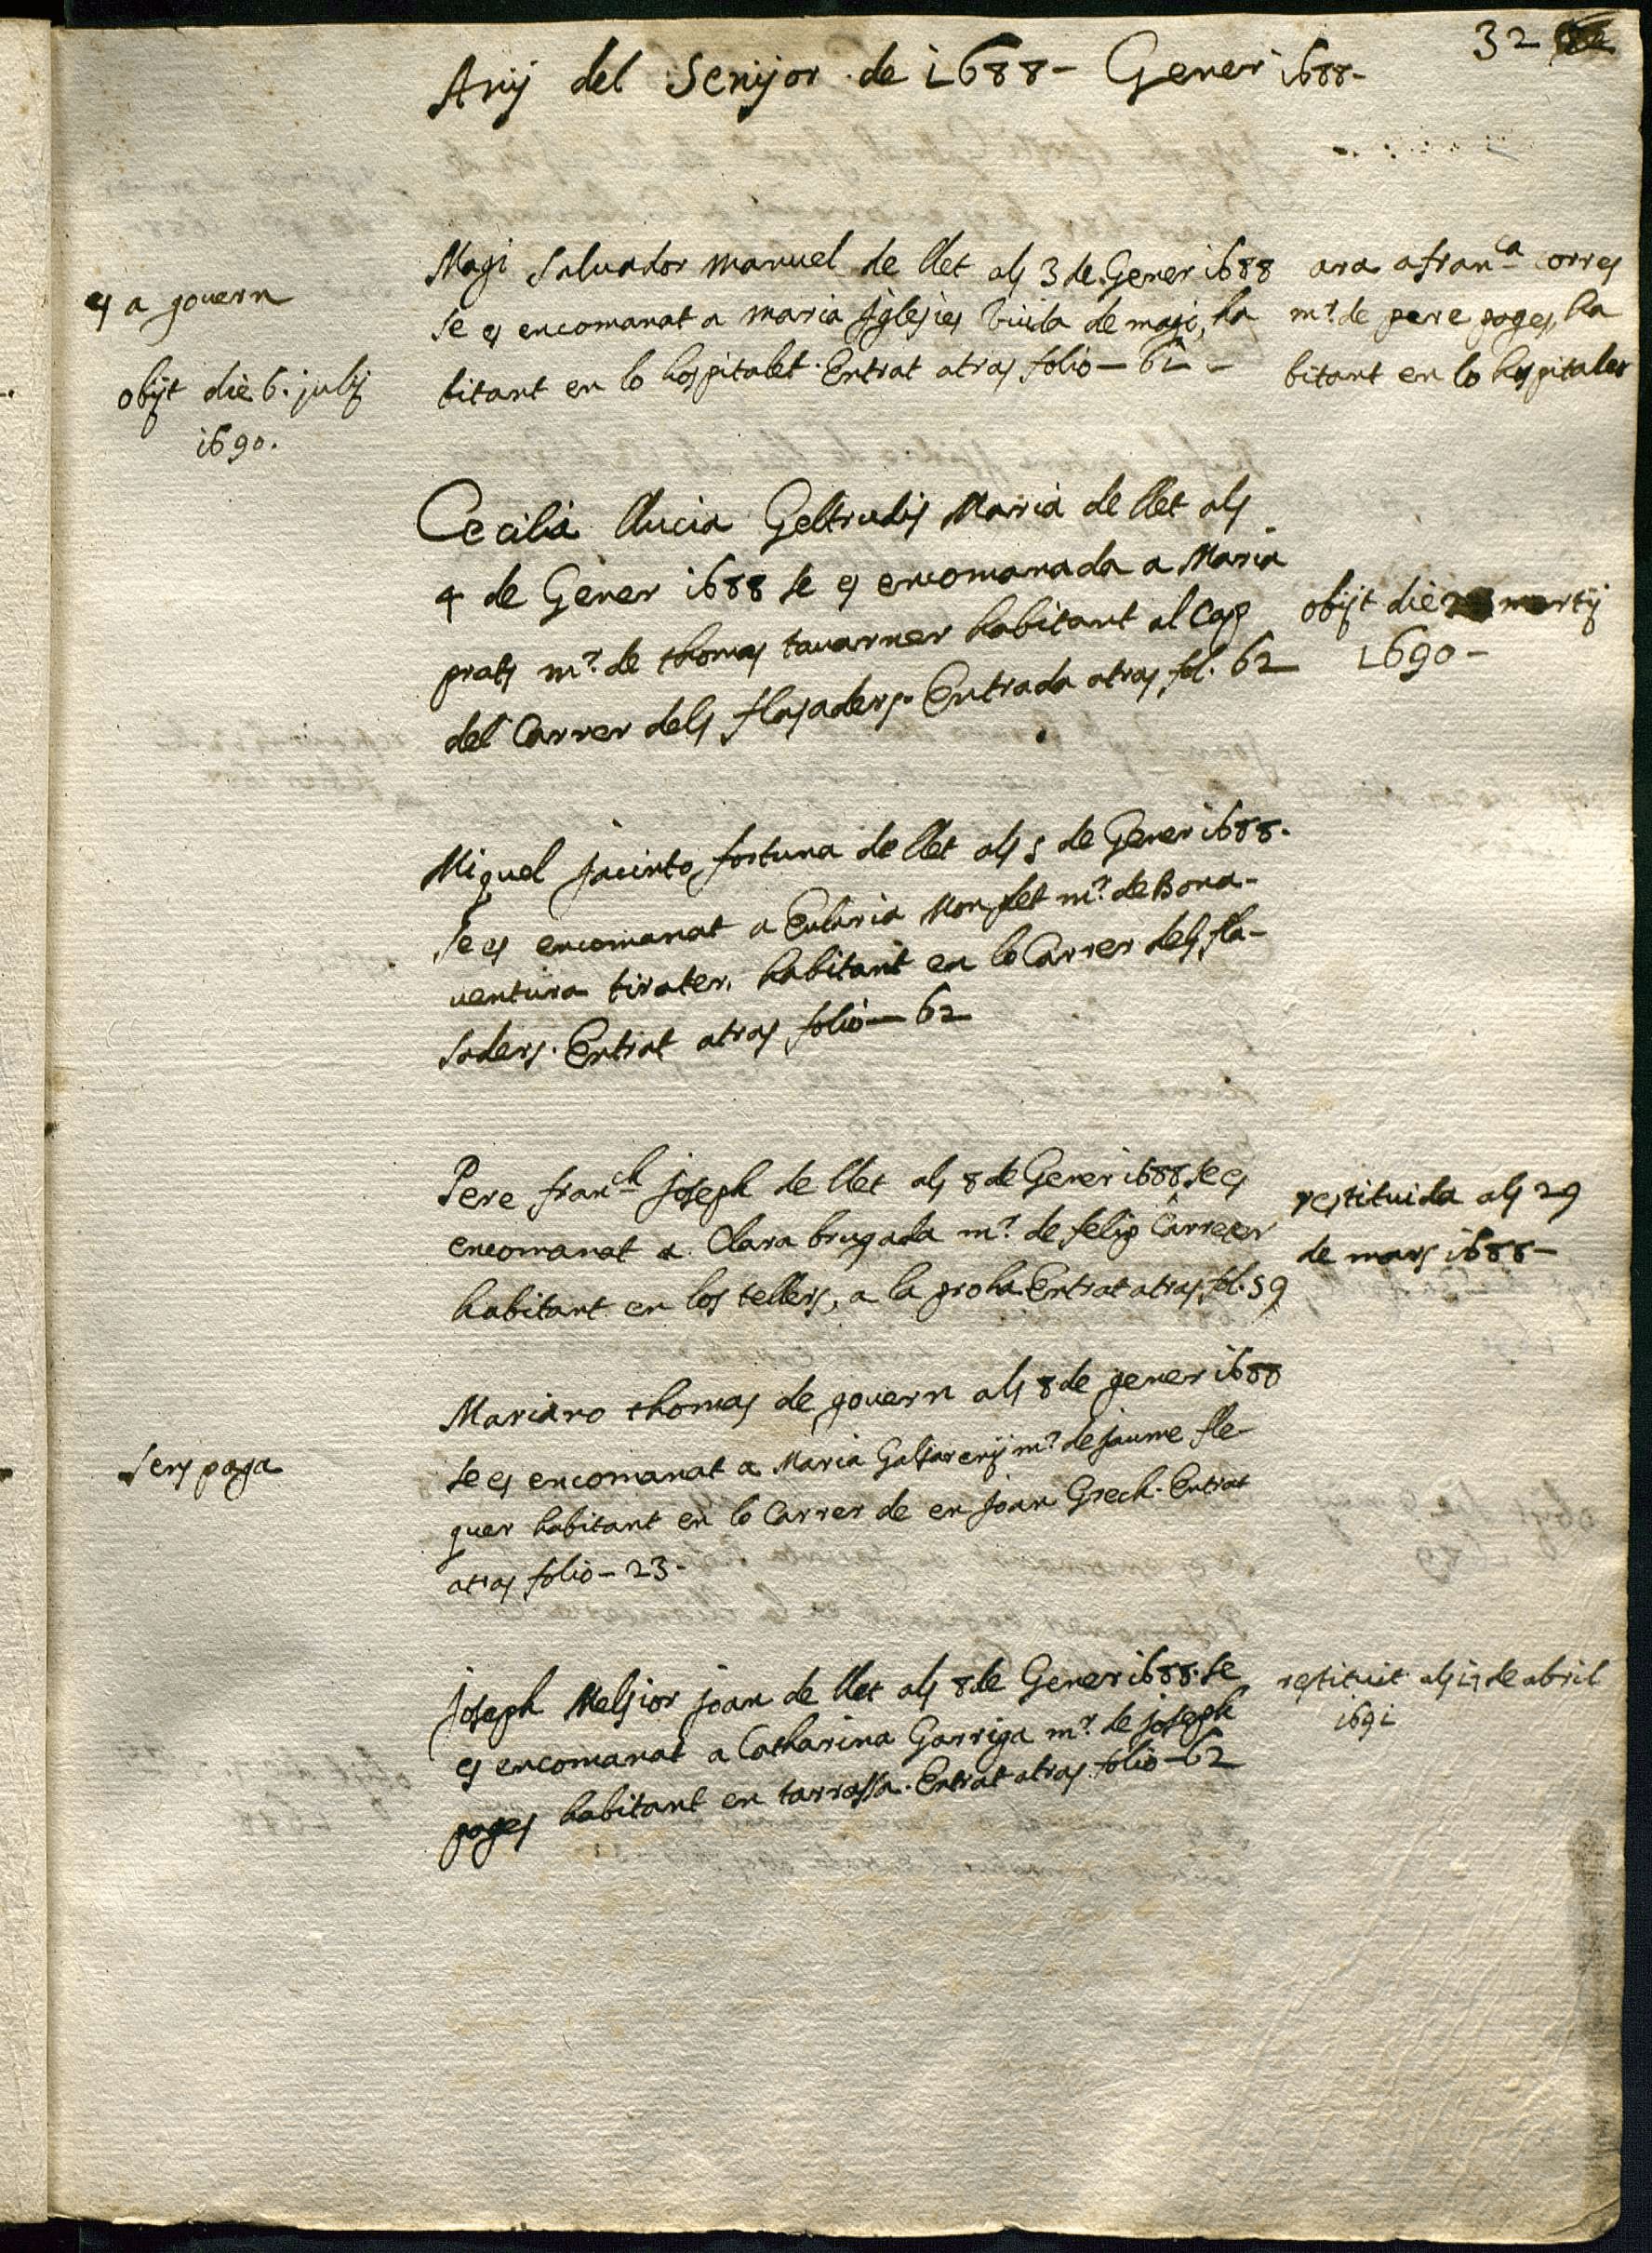 32
Anÿ del Senÿor de 1688 - Gener 1688 -
Magi Saluador manuel de llet als 3 de Gener 1688
se es encomanat a maria Iglesies viuda de magi, ha
bitant en lo hospitalet. Entrat atras folio - 62 -
es a gouern
obijt die 6. julij
1690.
ara a fran^ca orres
m^r. de pere pages, ha
bitant en lo hospitalet
Cecilia llucia Geltrudis Maria de llet als
4 de Gener 1688 se es encomanada a Maria
prats m^r. de thomas tauarner habitant al Cap
del Carrer dels flasaders. Entrada atras, fol. 62
obijt die martij
1690 -
Miquel jacinto fortuna de llet als 5 de Gener 1688.
se es encomanat a Eularia Monflet m^r. de Bona-
uentura tirater, habitant en lo Carrer dels fla-
saders. Entrat atras folio - 62
Pere fran^ch joseph de llet als 8 de Gener 1688 se es
encomanat a Clara brugada m^r. de felip Carreter
habitant en los tellers, a la proha. Entrat atras, fol. 59
restituida als 29
de mars 1688 -
Mariano thomas de gouern als 8 de gener 1688
se es encomanat a Maria Galsarenÿ m^r. de jaume fle-
quer habitant en lo Carrer de en joan Grech. Entrat
atras folio - 23 -
sens paga
joseph Melsior joan de llet als 8 de Gener 1688. se
es encomanat a Catharina Garriga m^r. de joseph
pages habitant en tarrassa. Entrat atras folio - 62
restituit als 17 de abril
1691